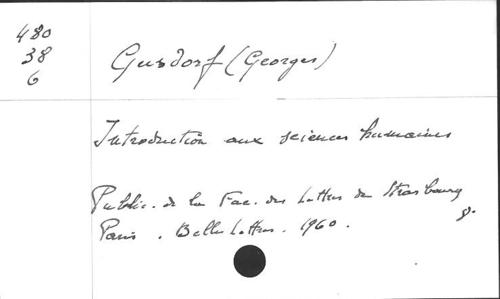 480
38
6
Gusdorf (Georges)
Introduction aux sciences humaines
Public. de la Fac. des Lettres de Strasbourg
Paris. Belles Lettres. 1960.
8.